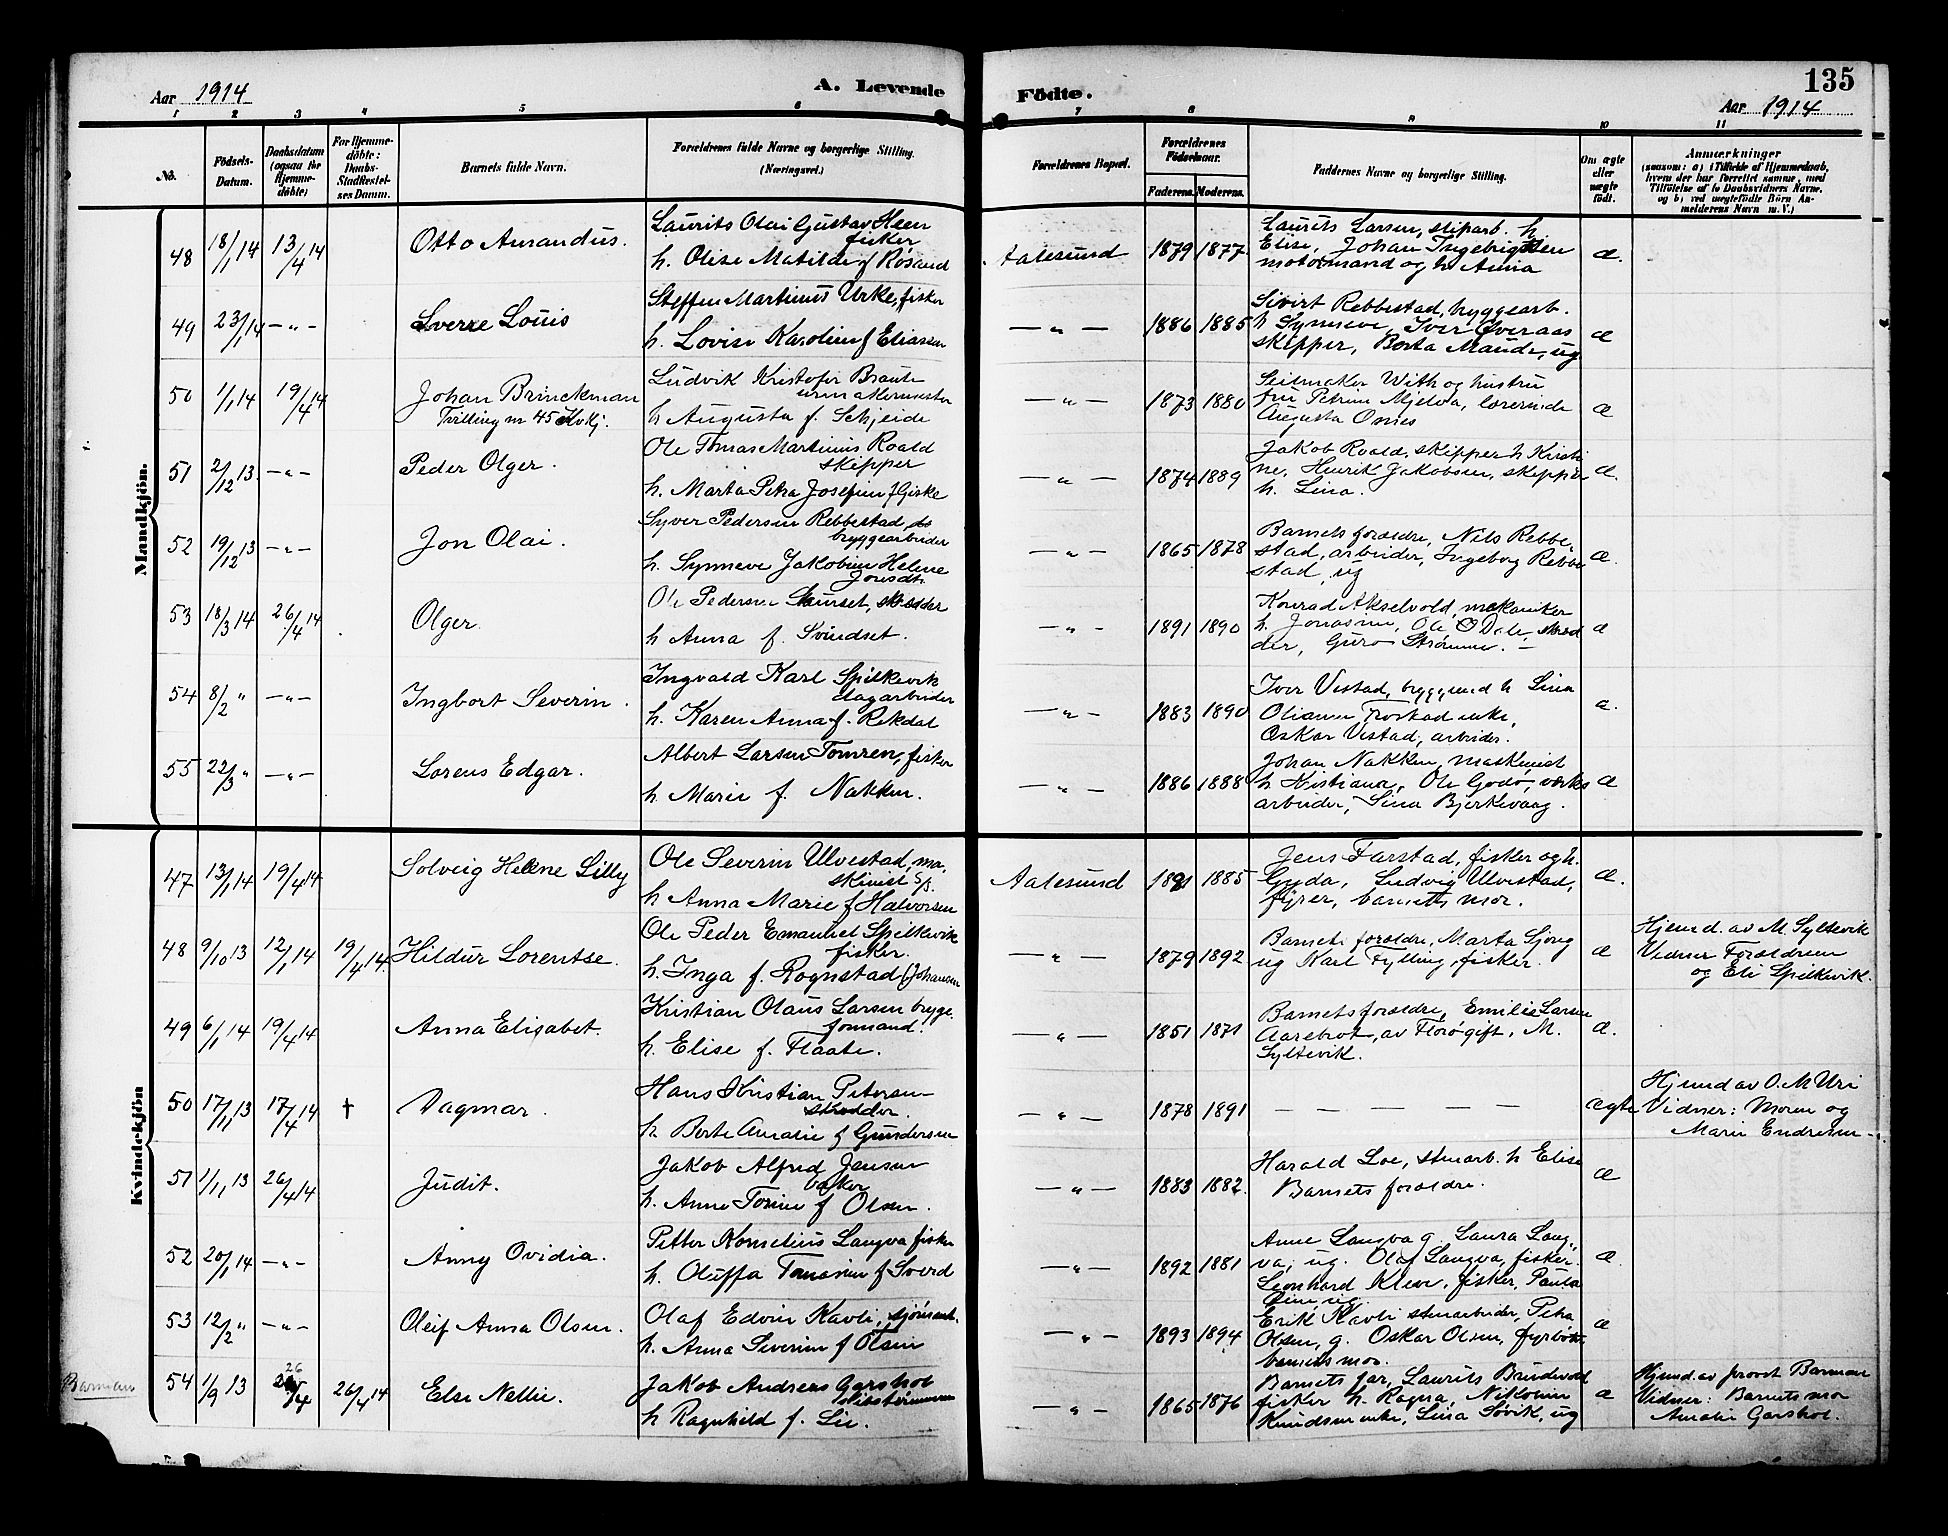 Aar 1914
A. Levende
Födte.
135
Aar 1914
1 2 3 4 5 6 7 8 9 10 11
No.
Födsels-Datum.
Daabsdatum (ogsaa for Hjemme-döbte)
For Hjemme-döbte: Daabs-Stadfæstel-ses Datum.
Barnets fulde Navn.
Forældrenes fulde Navne og borgerlige Stilling. (Næringsvei.)
Forældrenes Bopæl.
Forældrenes Födselsaar.
Faderens. Moderens.
Faddernes Navne og borgerlige Stilling.
Om ægte eller uægte födt.
Anmærkninger
(saasom: a) i Tilfælde af Hjemmedaab,
hvem der har forrettet samme, med
Tilföielse af to Daabsvidners Navne,
og b) ved uægtefödte Börn An-
melderens Navn m. V.)
Mandkjön.
48 18/1 14 13/4 14 Otto Amandus. Laurits Olai Gustav Heen
fisker
h. Olise Matilde f Røsand
Aalesund 1879 1877. Laurits Larsen, sliparb. h
Elise, Johan Ingebrigtsen
motormand og h. Anna
æ.
49 23/1 14 — " — Sverre Louis
Steffen Martinus Urke, fisker
h. Lovise Karoline f Eliassen
— " — 1886 1885 Sivirt Rebbestad, bryggearb.
h Synneve, Iver Øveraas
skipper, Berta Maude, ug
æ
50 1/1 14 19/4 14 Johan Brinckman
Tvilling m 45 Kvkj.
Ludvik Kristofer Braute
urmakermester
h Augusta f. Schjeide
— " — 1873 1880 Seilmaker With og hustru
fru Petrine Mjelva, lærerinde
Augusta Osnes
æ
51 2/12 13. — " — Peder Olger.
Ole Tomas Martinus Roald
skipper
h. Marta Petra Josefine f Giske
— " — 1874 1889 Jakob Roald, skipper h Kirsti
ne, Henrik Jakobsen, skipper
h. Lina.
æ.
52 19/12 13 — " — Jon Olai.
Syver Pedersen Rebbestad,
bryggearbeider
h. Synneve Jakobine Helene
Jonsdt.
— " — 1865 1878 Barnets forældre, Nils Rebbe
stad, arbeider, Ingeborg Rebbe
stad, ug
æ.
53 18/3 14 26/4 14 Olger.
Ole Pedersen Saurset, skrædder
h Anna f. Svindset.
— " — 1891 1890 Konrad Akselvold, mekaniker
h. Jonasine, Ole O Dale, skræd
der, Guro Strømme. —
æ
54 8/2 " — " — Ingbort Severin.
Ingvald Karl Spilkevik
slagarbeider
h. Karen Anna f. Rekdal
— " — 1883 1890 Iver Vestad, bryggmd h Lina
Olianna Frostad enke,
Oskar Vestad, arbeider.
æ.
55 22/3 " — " — Lorens Edgar.
Albert Larsen Tomren, fisker
h Marie f. Nakken.
— " — 1886 1888 Johan Nakken, maskinist
h Kristiana, Ole Godø, verks
arbeider, Lina Bjerkevaag.
æ
Kvindekjön
47 13/1 14 19/4 14 Solveig Helene Lilly
Ole Severin Ulvestad, ma-
skinist s/s.
h Anna Marie f Halvorsen
Aalesund 1881 1885 Jens Farstad, fisker og h.
Gyda, Ludvig Ulvestad,
fyrer, barnets mor.
æ.
48 9/10 13 12/1 14 19/4 14. Hildur Lorentse.
Ole Peder Emanuel Spilkevik
fisker.
h. Inga f. Rognstad (Johansen
— " — 1879 1892 Barnets forældre, Marta Sjong
ug Karl Fylling, fisker.
æ
Hjemd. av M. Syltevik
Vidner Forældrene
og Eli Spilkevik.
49 6/1 14 19/4 14 Anna Elisabet.
Kristian Olaus Larsen brygge
formand.
h. Elise f. Flaate.
— " — 1851 1871 Barnets forældre, Emilie Larsen
Aarebrot, av Florø gift, M.
Syltevik.
æ.
50 17/11 13 17/4 14 † Dagmar.
Hans Kristian Petersen
skrædder.
h. Berte Amalie f Gundersen
— " — 1878 1891 — — — — — ægte
Hjemd av O. M Uri
Vidner: Moren og
Marie Endresen
51 1/11 13 26/4 14 Judit.
Jakob Alfred Jensen
baker
h. Anne Tomine f Olsen.
— " — 1883 1882. Harald Loe, stenarb. h Elise
Barnets forældre.
æ
52 20/1 14 — " — Anny Ovidia.
Petter Kornelius Langva fisker
h. Oluffa Tomasine f Sverd
— " — 1892 1881 Anne Langva g. Laura Lang
va, ug. Olaf Langva, fisker.
Leonhard Kleve, fisker, Paula
ug.
æ.
53 12/2 " — " — Oleif Anna Olsen.
Olaf Edvin Kavli, sjømand.
h. Anna Severine f Olsen
— " — 1893 1894 Erik Kavli stenarbeider, Petra
Olsen, g. Oskar Olsen, fyrbøter
barnets mor.
æ
Barman
54 1/9 13 26/4 26/4 14 Else Nellie.
Jakob Andreas Garshol
h Ragnhild f. Lie.
— " — 1865 1876 Barnets far, Laurits Brudevold
fisker h. Ragna, Nikoline
Knudsen enke, Lina Søvik, ug
æ
Hjemd. av provst Barman
Vidner: Barnets mor
Amalie Garshol.